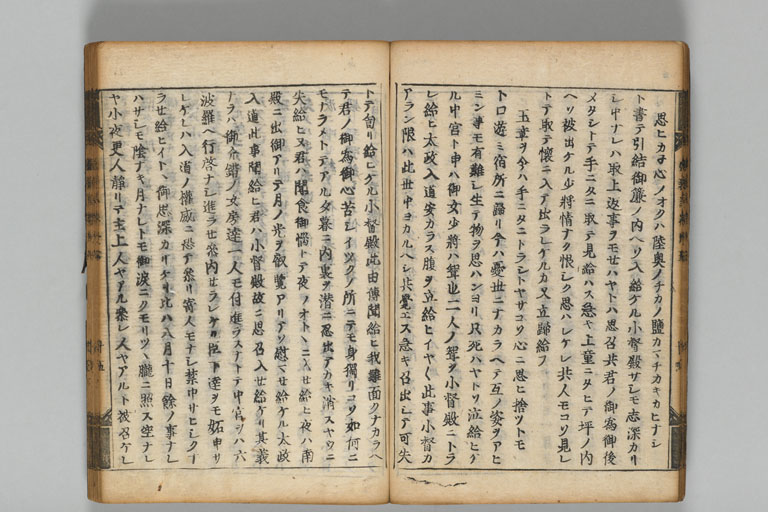 思ヒカネ心ノオクハ陸奥ノチカノ鹽カマチカキカヒナシ
ト書テ引結御簾ノ内ヘソ入給ケル小督殿サレモ志深カリ
シ中ナレハ取上返事ヲモセハヤトハ思召共君ノ御為御後
メタシトテ手ニタニ取テ見給ハス急キ上童ニタヒテ坪ノ内
ヘソ被出ケル少将情ナク恨シク思ハレケレ共人モコソ見レ
トテ取テ懐ニ入テ出ラレケルカ又立歸給フ
玉章ヲ今ハ手ニタニトラシトヤサコソ心ニ思ヒ捨ツトモ
トロ遊ミ宿所ニ歸リ今ハ憂世ニナカラヘテ互ノ姿ヲアヒ
ミン事モ有難シ生テ物ヲ思ハンヨリ只死ハヤトソ泣給ヒケ
ル中宮ト申ハ御女少将ハ聟也二人ノ聟ヲ小督殿ニトラ
レ給ヒ太政入道安カラス腹ヲ立給ヒイヤく此事小督カ
アラン限ハ此世中ヨカルヘシ共覺エス急キ召出シテ可失
トテ旬リ給ヒケル小督殿此由傳聞給ヒ我難面クナカラヘ
テ君ノ御為御心苦シイツクノ所ニテモ身獨リコソ如何ニ
モナラメトテアル夕暮ニ内裏ヲ潜ニ忍出テカキ消スヤウニ
失給ヒヌ君ハ聞食御歎トテ夜ノオトヽニ入セ給ヒ夜ハ南
殿ニ出御アリテ月ノ光ヲ叡覧アリテソ慰マセ給ケル太政
入道此事聞給ヒ君ハ小督殿故ニ思召入セ給ケリ其義
ナラハ御介錯ノ女房達一人モ付進ラスナトテ中宮ヲハ六
波羅ヘ行啓ナシ進ラセ参内セラレケル臣下達ヲモ妬申サ
レケレハ入道ノ權威ニ恐テ参リ寄人モナシ禁中ヒシクー
ラセ給ヒイトヽ御思深カリケリ比ハ八月十日餘ノ事ナレ
ハサシモ陰ナキ月ナレトモ御涙ニクモリツヽ朧ニ照ス空ナレ
ヤ小夜更人靜リテ主上人ヤアル参レ人ヤアルト被召ケレ